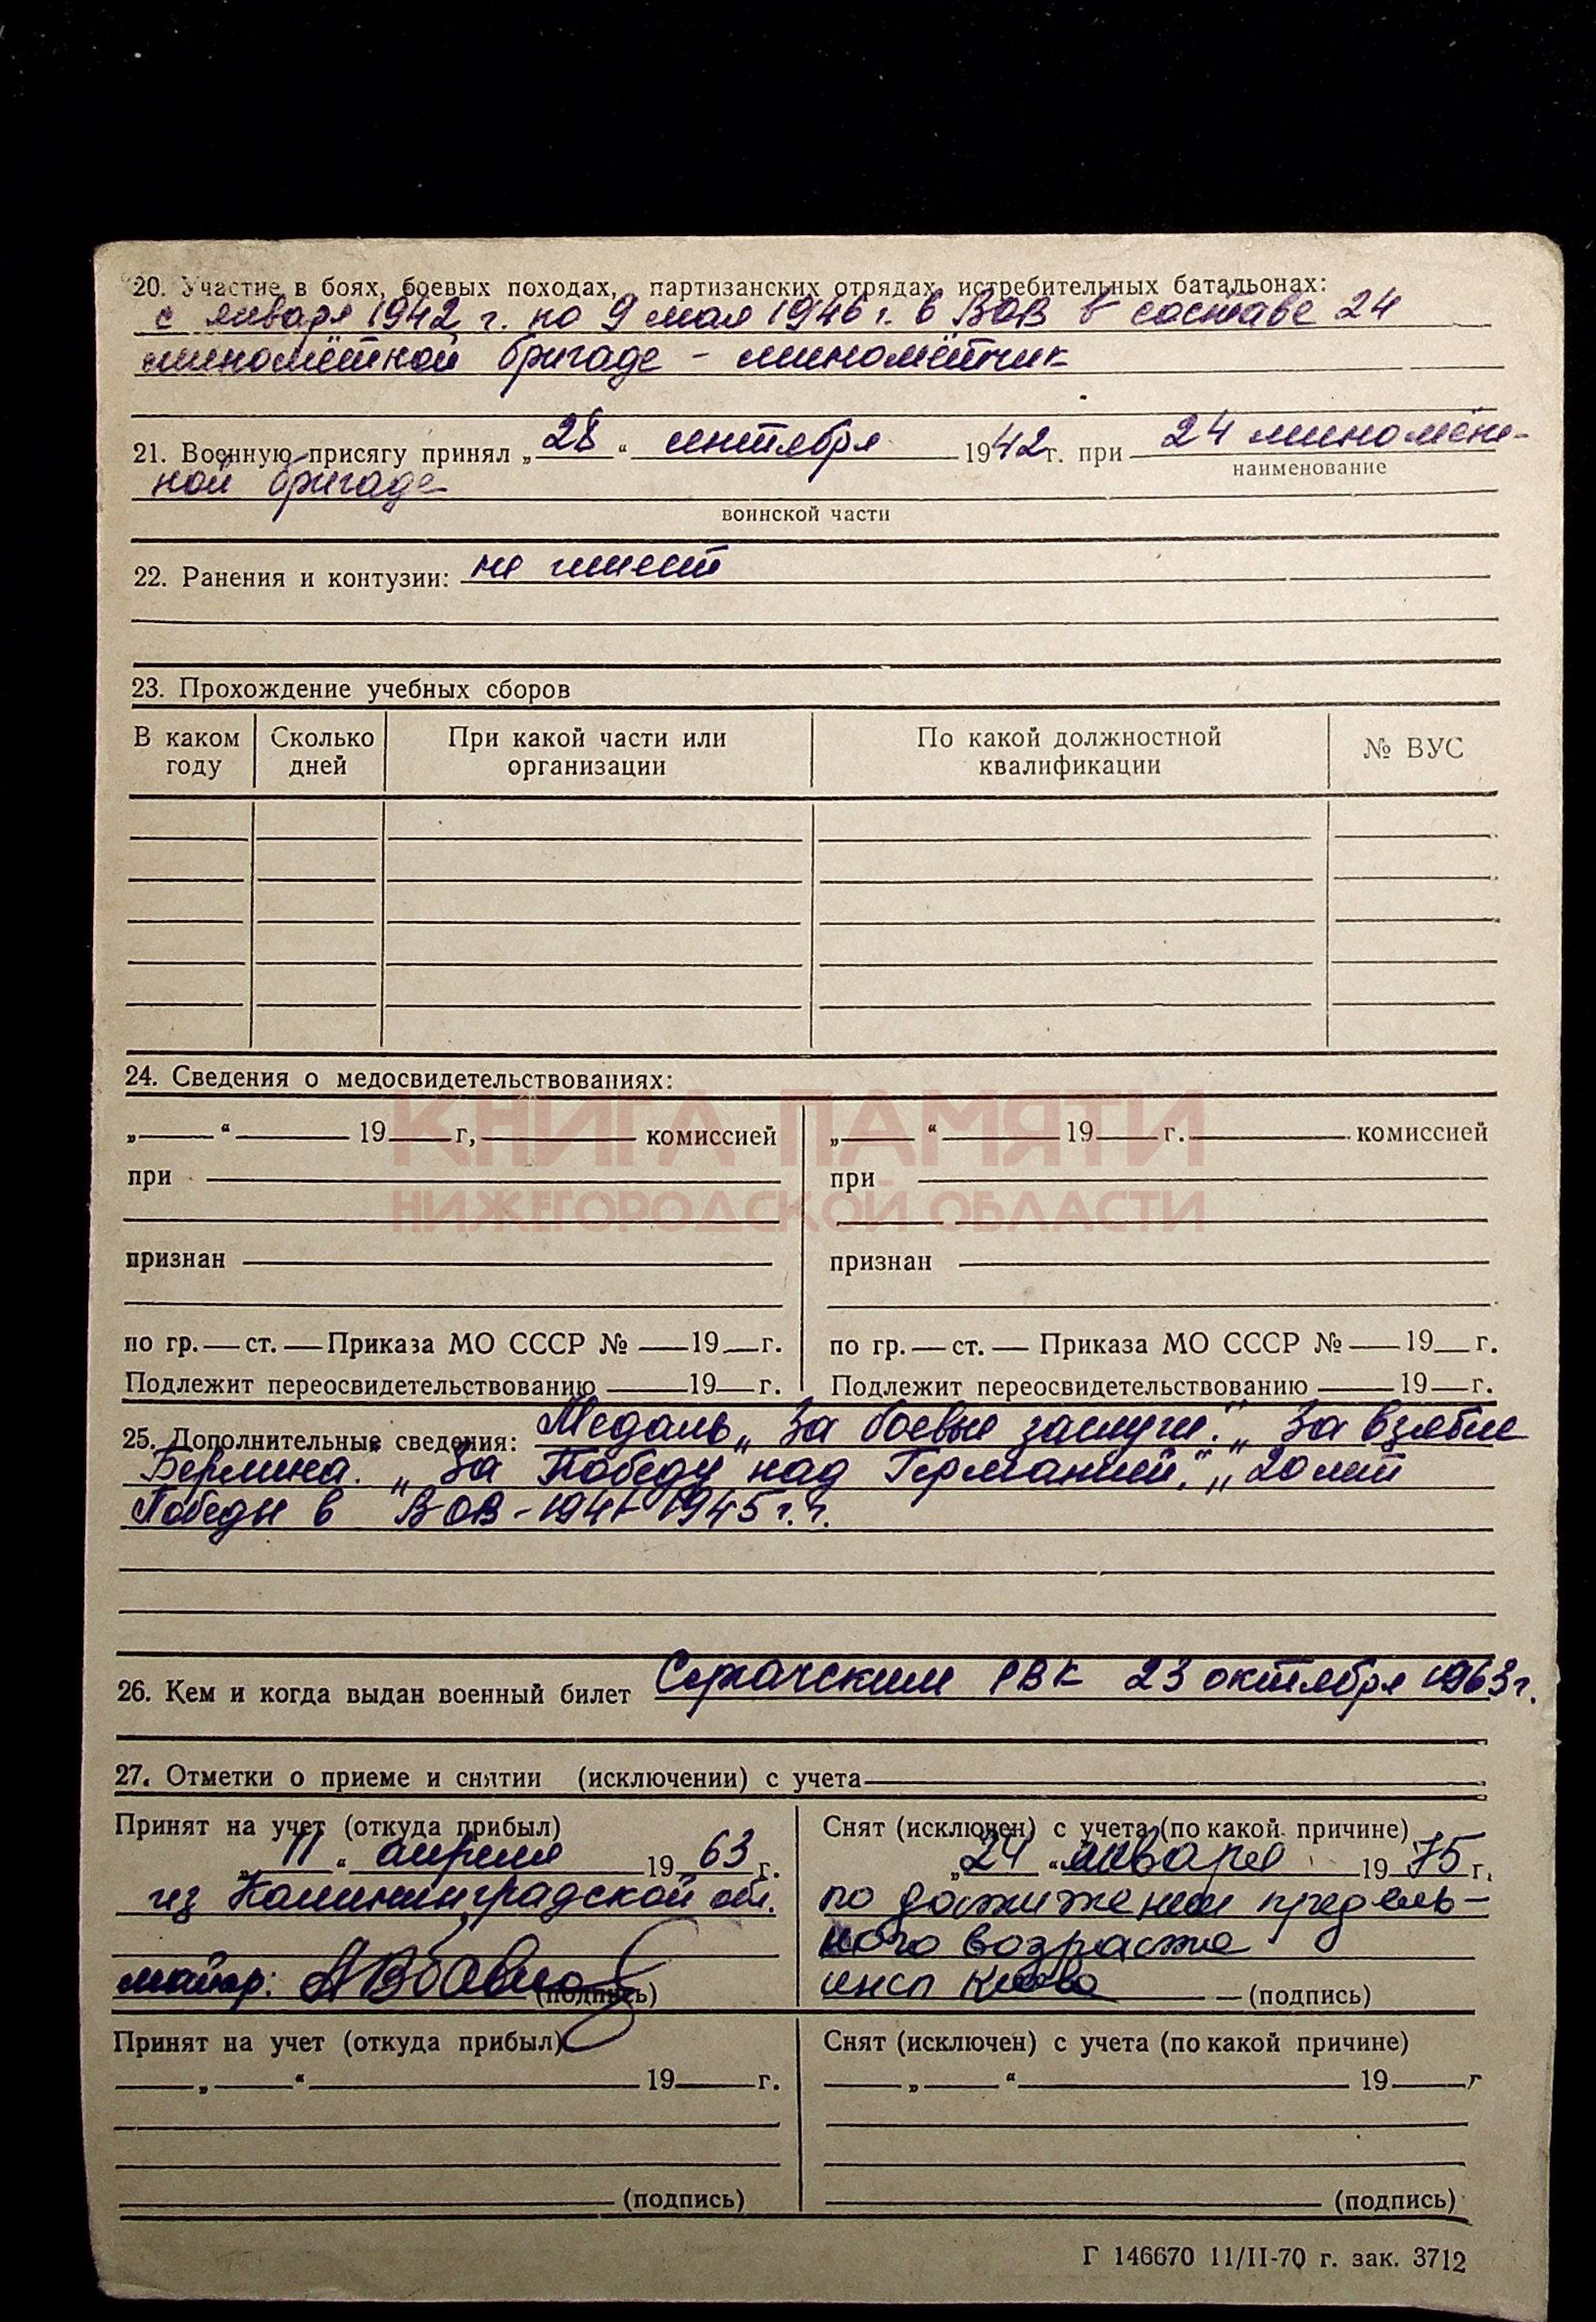 20. Участие в боях, боевых походах, партизанских отрядах, истребительных батальонах:
с января 1942 г. по 9 мая 1946 г. в ВОВ в составе 24
миномётной бригаде - миномётчик
21. Военную присягу принял „28“ сентября 1942г. при 24 миномёт-
наименование
ной бригаде
воинской части
22. Ранения и контузии: не имеет
23. Прохождение учебных сборов
В каком году Сколько дней При какой части или организации По какой должностной квалификации № ВУС
24. Сведения о медосвидетельствованиях:
КНИГА ПАМЯТИ
НИЖЕГОРОДСКОЙ ОБЛАСТИ
„ “ 19 г, комиссией „ “ 19 г. комиссией
при при
признан признан
по гр. ст. Приказа МО СССР № 19 г. по гр. ст. Приказа МО СССР № 19 г.
Подлежит переосвидетельствованию 19 г. Подлежит переосвидетельствованию 19 г.
25. Дополнительные сведения: Медаль „За боевые заслуги." „За взятие
Берлина." „За Победу над Германией." „20 лет
Победы в ВОВ - 1941-1945 г.г.
26. Кем и когда выдан военный билет Сергачским РВК 23 октября 1963г.
27. Отметки о приеме и снятии (исключении) с учета
Принят на учет (откуда прибыл) Снят (исключен) с учета (по какой причине)
„11“ апреля 1963 г. „24“ января 1975 г.
из Калининградской обл. по достижении предель-
ного возраста
майор: (подпись) инсп (подпись)
Принят на учет (откуда прибыл) Снят (исключен) с учета (по какой причине)
„ “ 19 г. „ “ 19 г
(подпись) (подпись)
Г 146670 11/II-70 г. зак. 3712